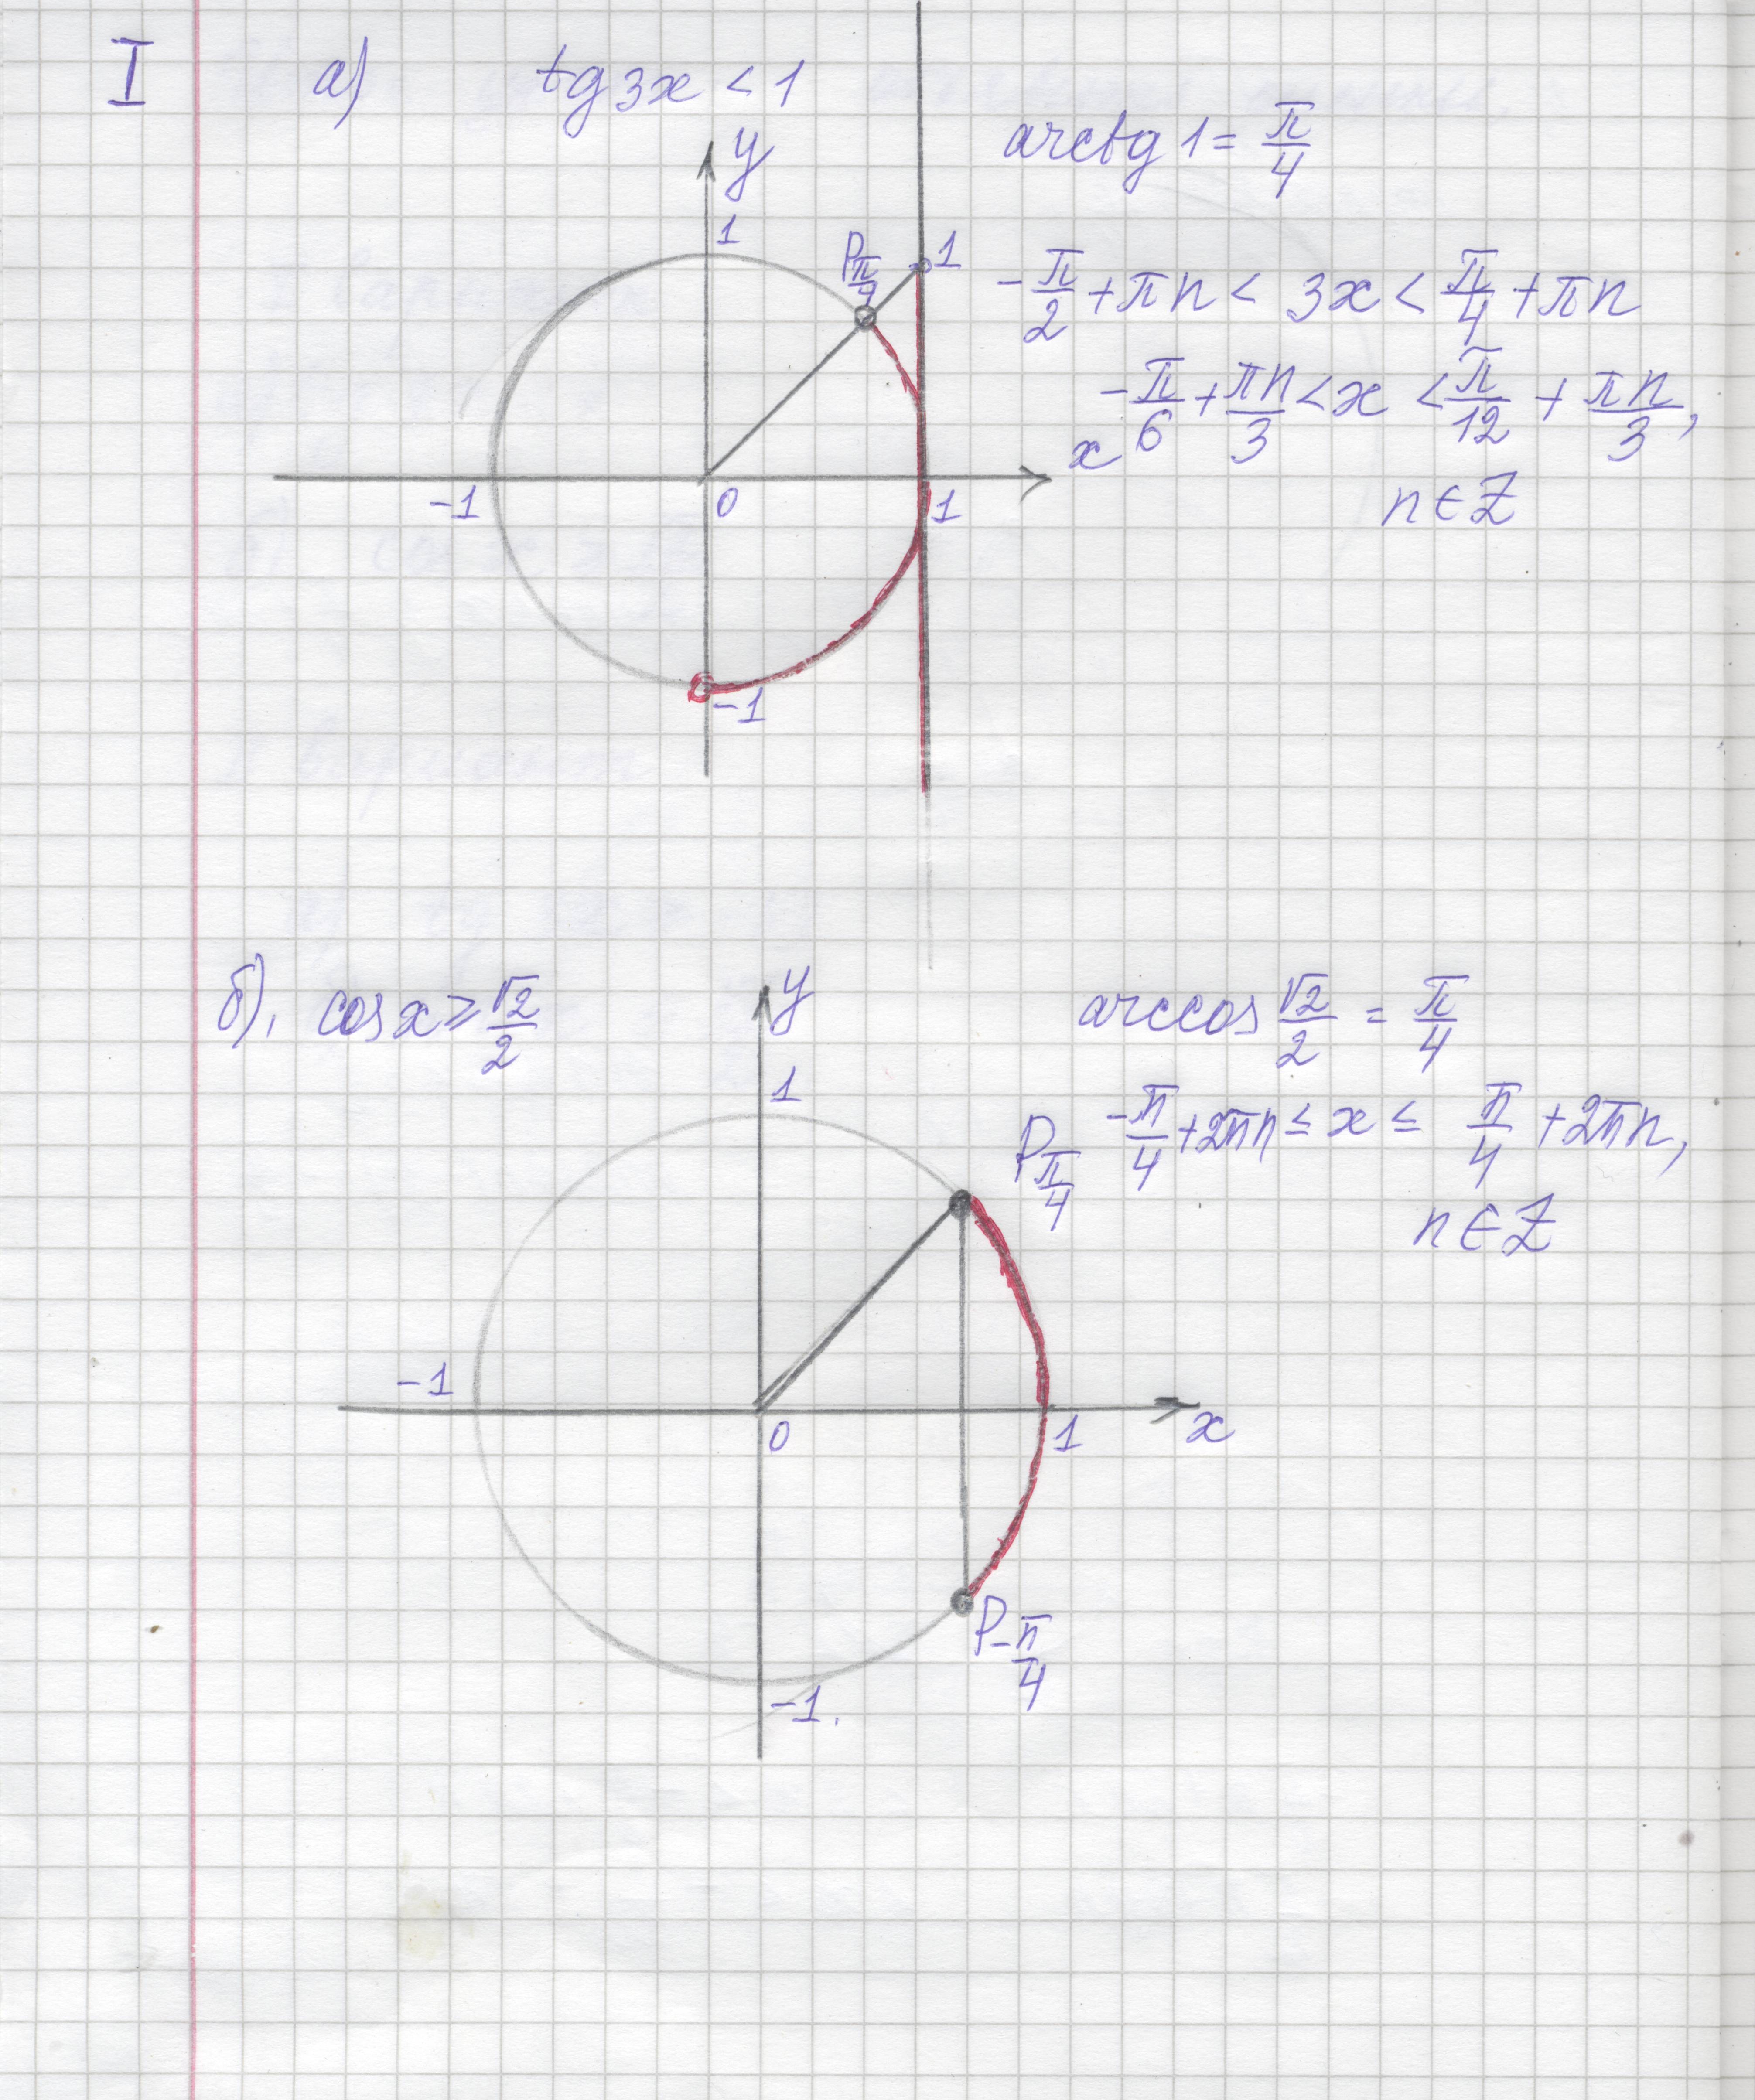 I а) tg 3x < 1
arctg 1 = π/4
y
1
P π/4
1
-π/2 + πn < 3x < π/4 + πn
-π/6 + πn/3 < x < π/12 + πn/3,
x
-1 0 1
n ∈ Z
-1
б), cos x ≥ √2/2
y
arccos √2/2 = π/4
1
P π/4
-π/4 + 2πn ≤ x ≤ π/4 + 2πn,
n ∈ Z
-1
0 1 x
P -π/4
-1.